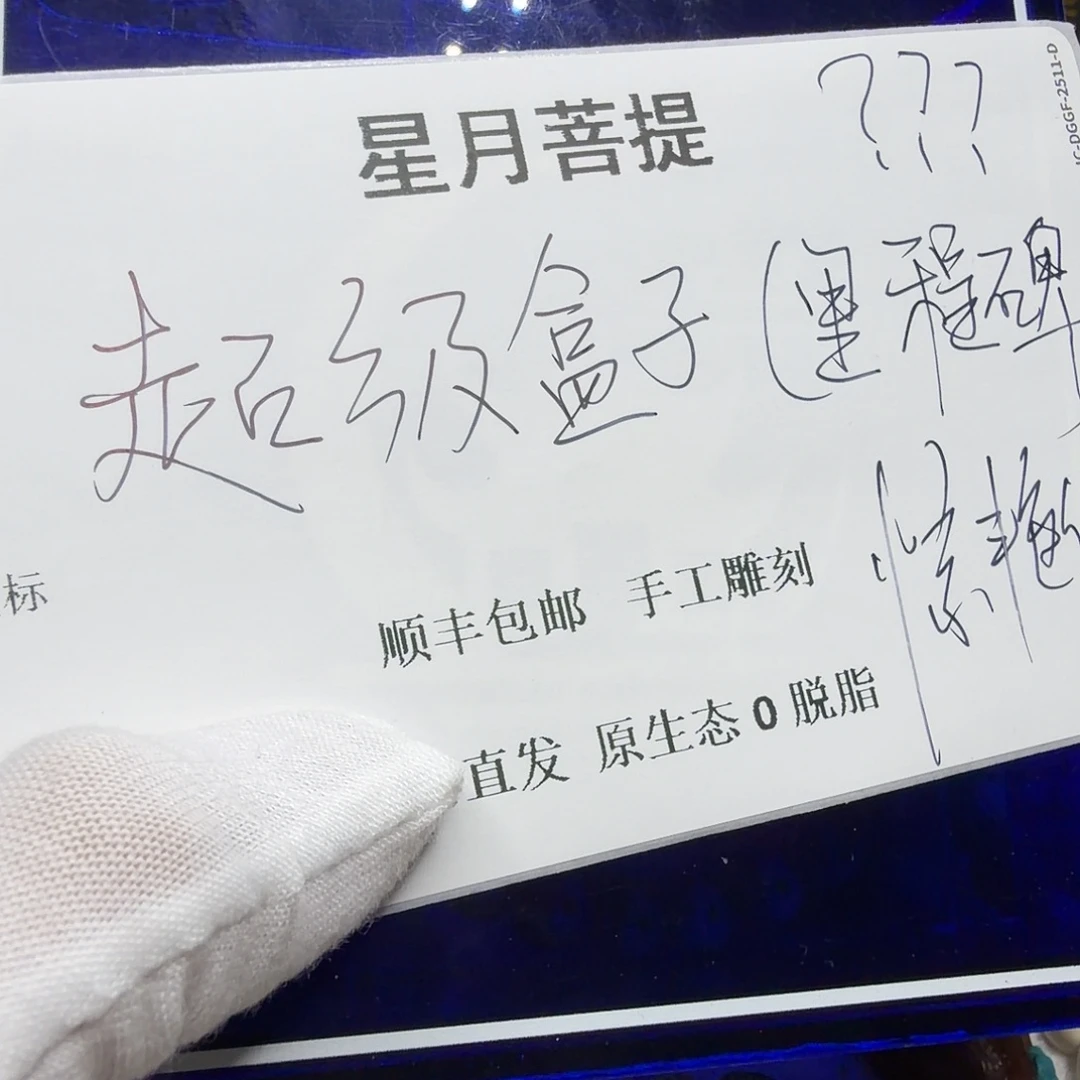 星月菩提
???
JC-DGGF-2511-D
超级盒子(里程碑)
标
顺丰包邮 手工雕刻
直发 原生态0脱脂